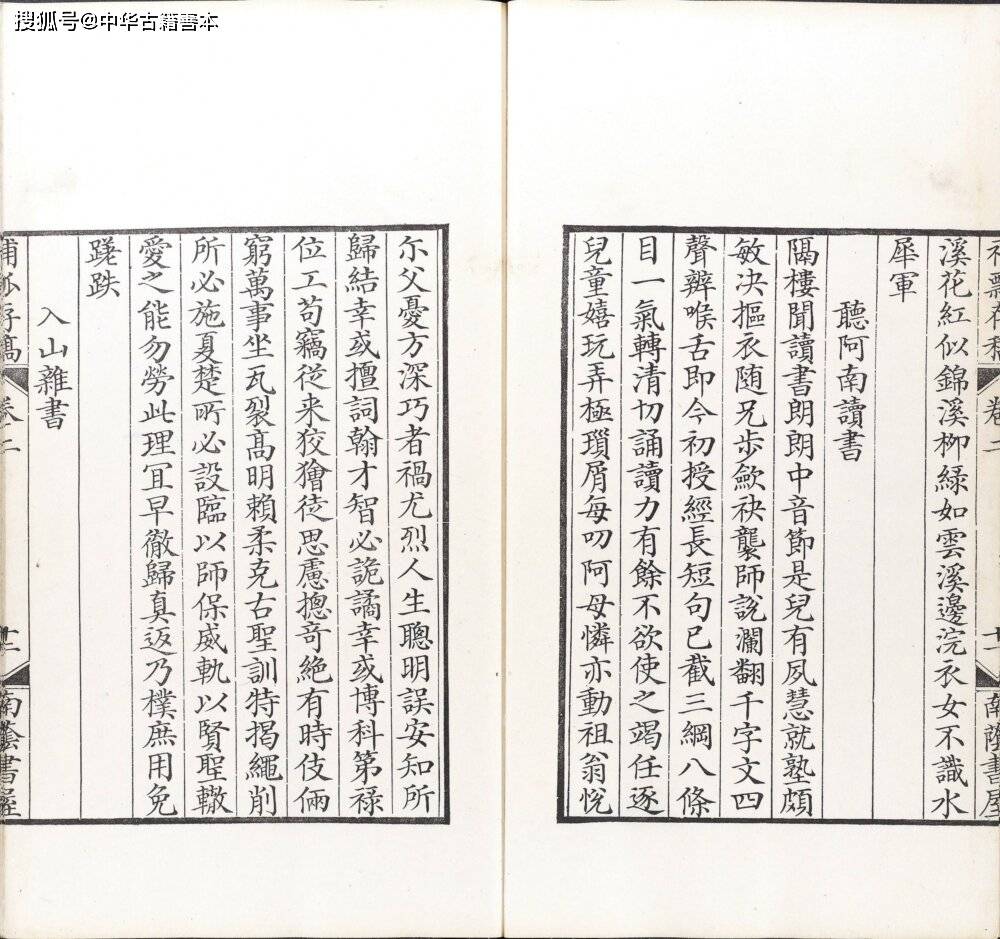 搜狐号@中华古籍善本
溪花紅似錦溪柳緑如雲溪邊浣衣女不識水
犀軍
聽阿南讀書
隔樓聞讀書朗朗中音節是兒有夙慧就塾頗
敏决摳衣随兄步歛袂襲師說瀾翻千字文四
聲辨喉舌即今初授經長短句已截三綱八條
目一氣轉清切誦讀力有餘不欲使之竭任逐
兒童嬉玩弄極瑣屑每叨阿母憐亦動祖翁悅
尓父憂方深巧者禍尤烈人生聰明誤安知所
歸結幸或擅詞翰才智必詭譎幸或博科第禄
位工苟竊從来狡獪徒思慮摠竒絶有時伎倆
窮萬事坐瓦裂髙明賴柔克古聖訓特揭繩削
所必施夏楚所必設臨以師保威軌以賢聖轍
愛之能勿勞此理冝早徹歸真返乃樸庶用免
蹉跌
入山雜書
卷二
南蔭書屋